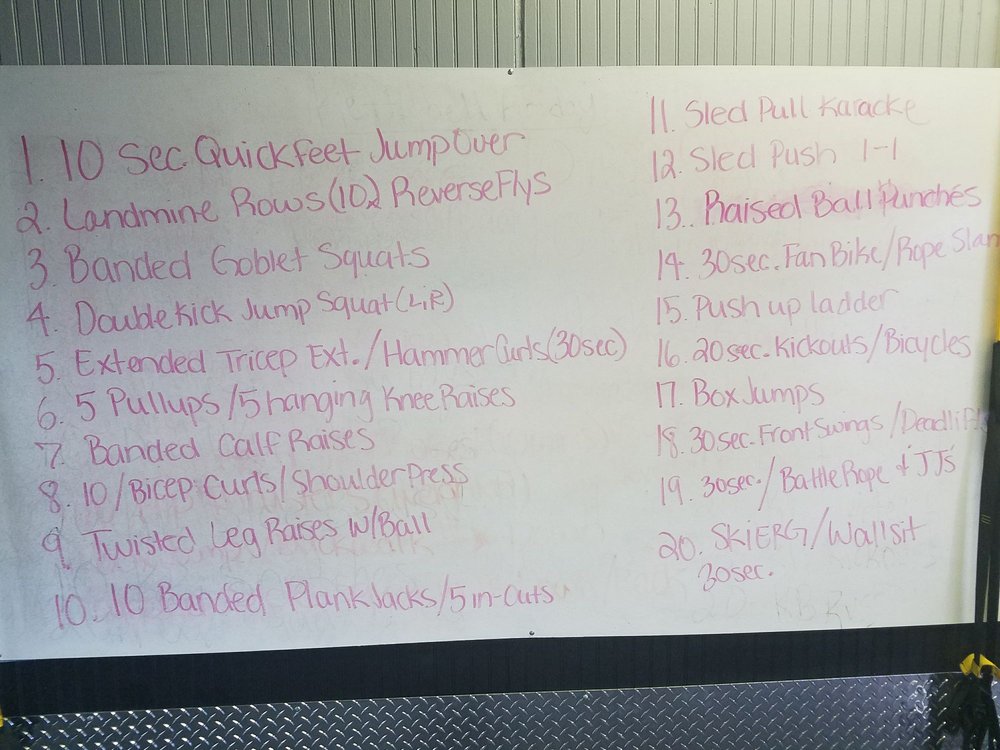 1. 10 Sec. Quickfeet Jump Over
2. Landmine Rows (10) Reverse Flys
3. Banded Goblet Squats
4. Double Kick Jump Squat (L;R)
5. Extended Tricep Ext./Hammer Curls (30sec)
6. 5 Pullups/5 hanging Knee Raises
7. Banded Calf Raises
8. 10/Bicep Curls/Shoulder Press
9. Twisted Leg Raises w/Ball
10. 10 Banded Plank Jacks/5 in-outs
11. Sled Pull Karaoke
12. Sled Push 1-1
13. Raised Ball Punches
14. 30sec. Fan Bike/Rope Slam
15. Push up ladder
16. 20sec. Kickouts/Bicycles
17. Box Jumps
18. 30sec. Front Swings/Deadlifts
19. 30sec./Battle Rope + JJ's
20. SkiERG/Wallsit
30sec.